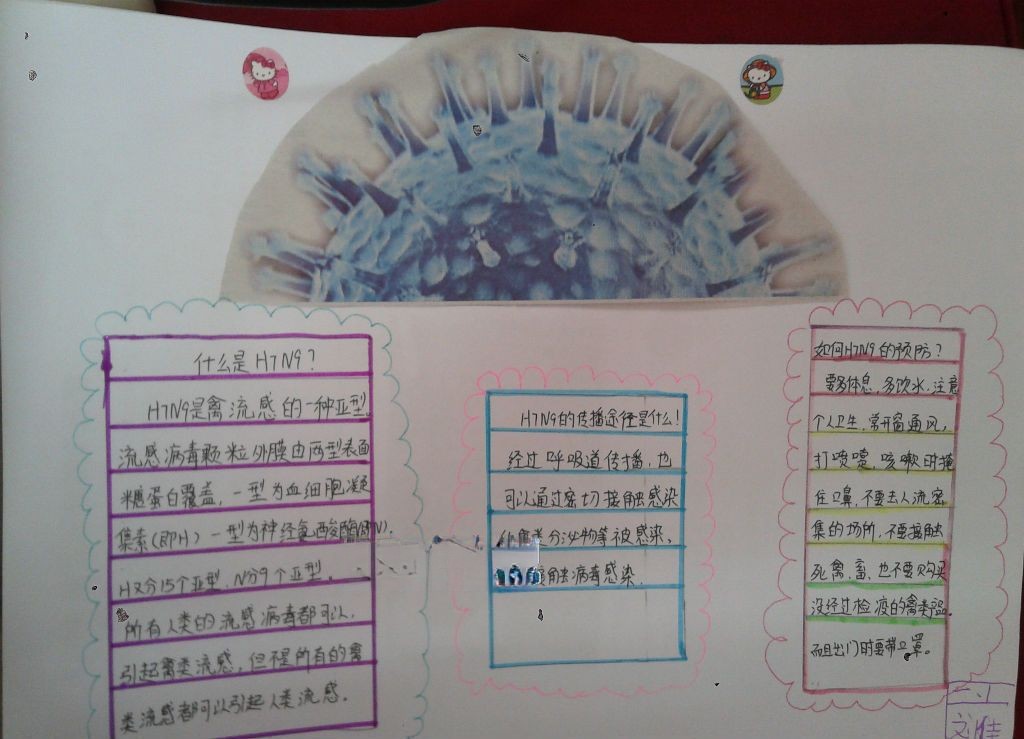 什么是H7N9？
H7N9是禽流感的一种亚型
流感病毒颗粒外膜由两型表面
糖蛋白覆盖，一型为血细胞凝
集素(即H)一型为神经氨酸酶(即N).
H又分15个亚型，N分9个亚型。
所有人类的流感病毒都可以，
引起禽类流感，但不是所有的禽
类流感都可以引起人类流感。
H7N9的传播途径是什么！
经过呼吸道传播，也
可以通过密切接触感染
禽类分泌物等被感染。
触病毒感染.
如何H7N9的预防？
要多休息，多饮水，注意
个人卫生，常开窗通风，
打喷嚏，咳嗽时掩
住口鼻，不要去人流密
集的场所，不要接触
死禽、畜，也不要购买
没经过检疫的禽类
而且出门时要带口罩。
刘佳